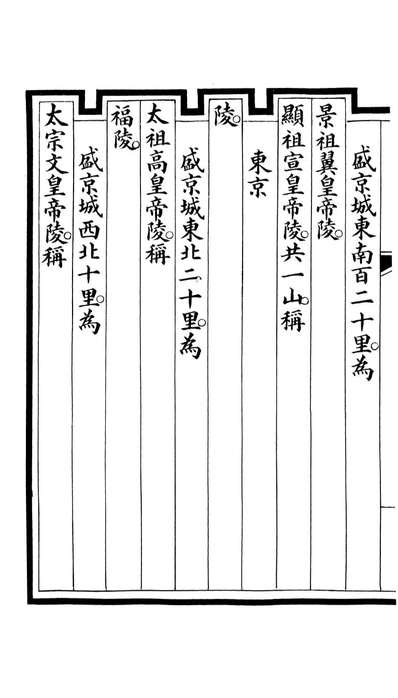 盛京城東南百二十里。為
景祖翼皇帝陵。
顯祖宣皇帝陵。共一山。稱
東京
陵。
盛京城東北二十里。為
太祖高皇帝陵。稱
福陵。
盛京城西北十里。為
太宗文皇帝陵。稱